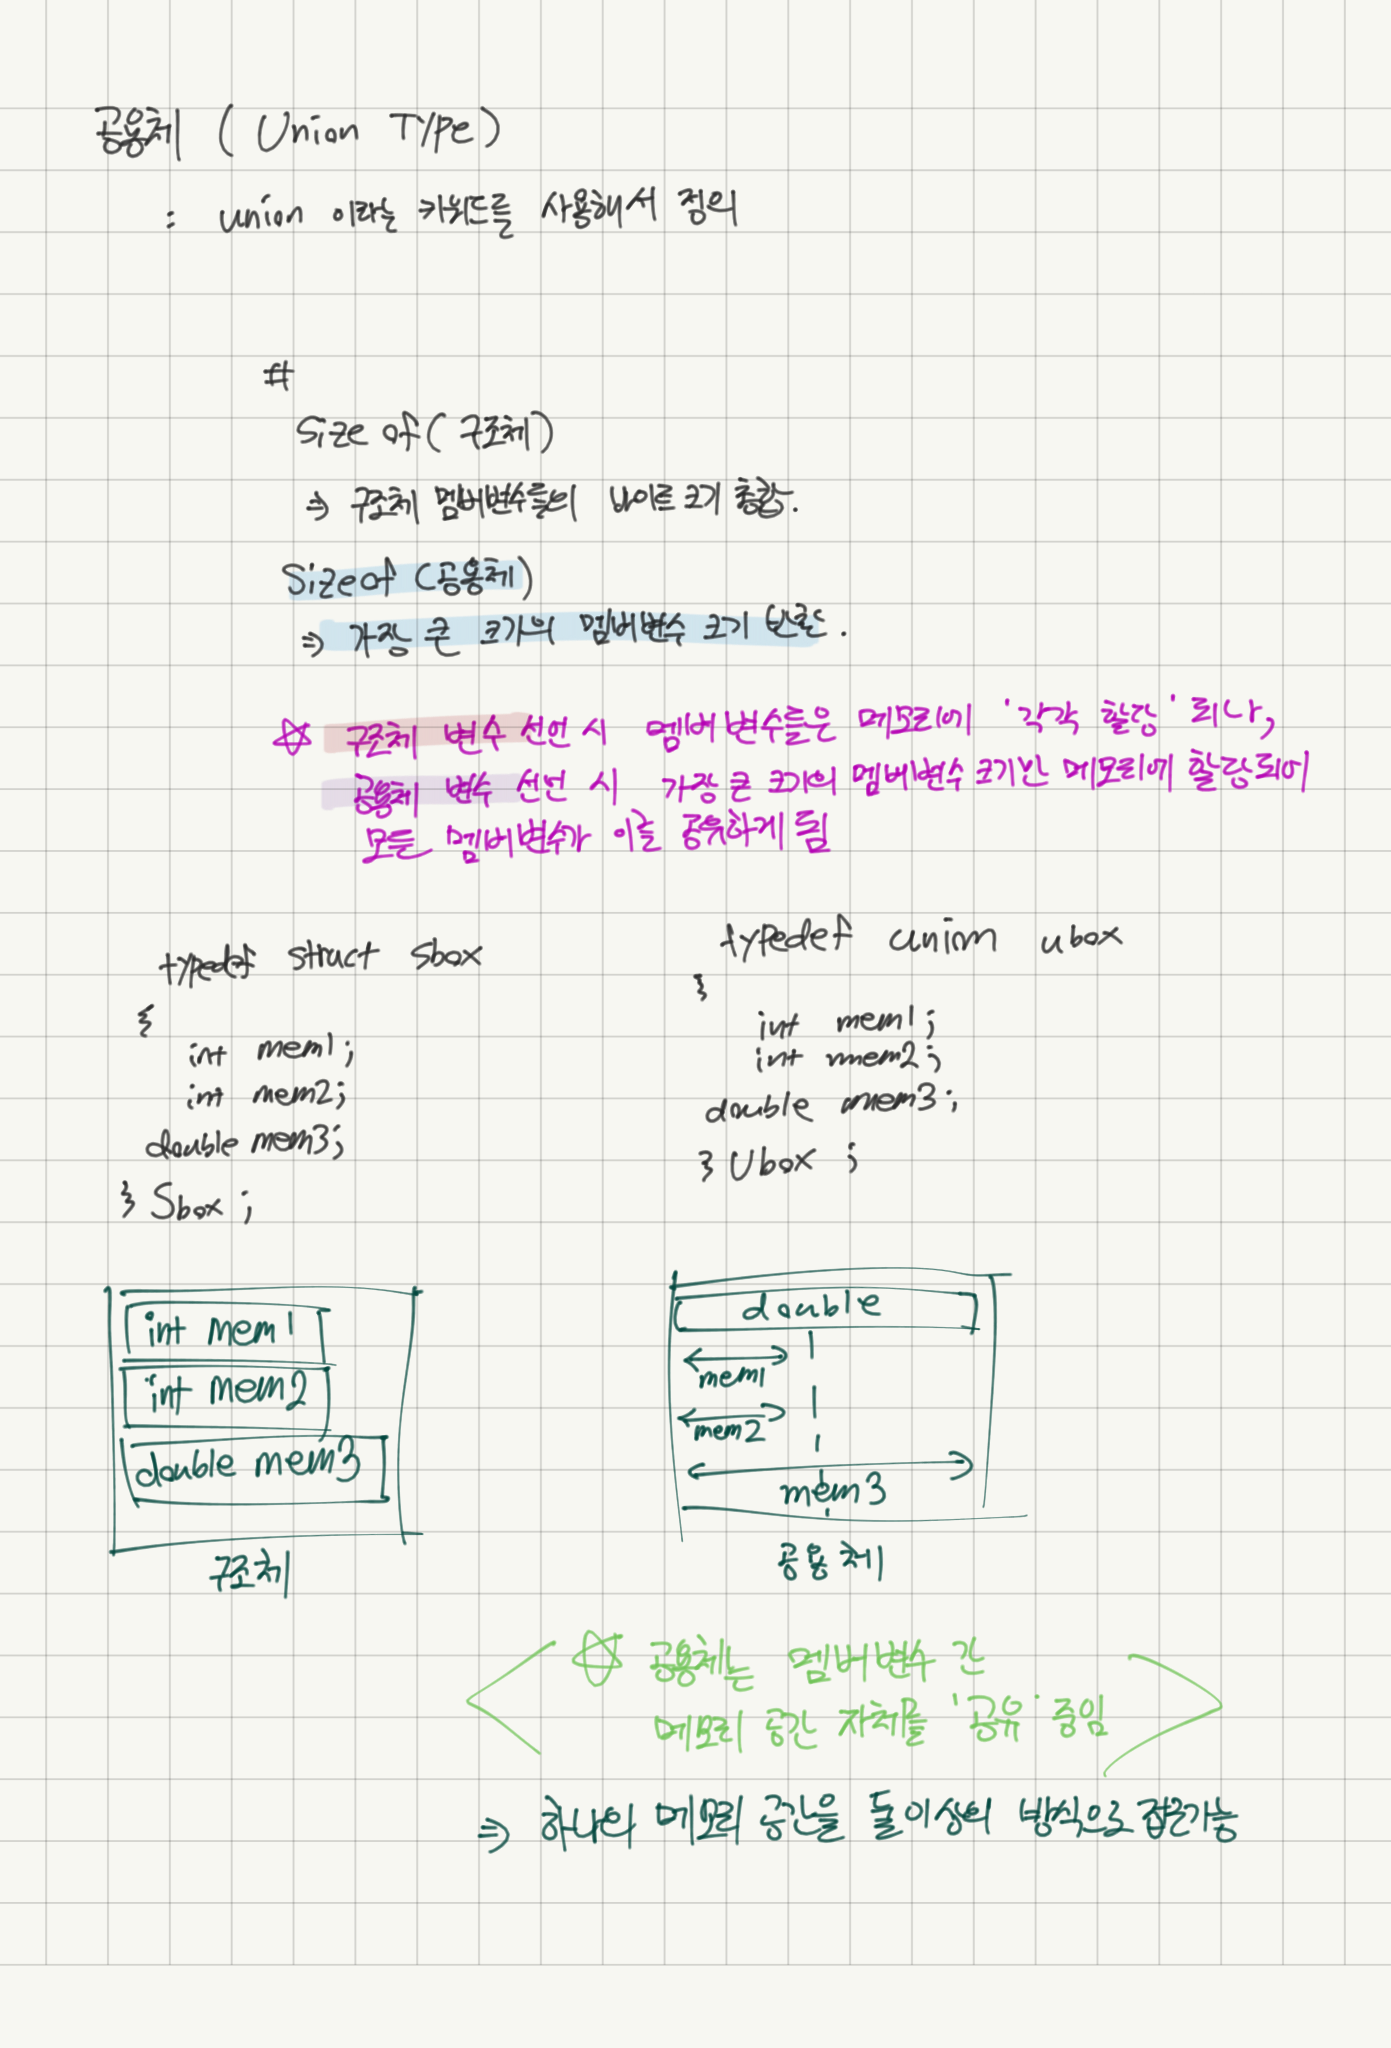 공용체 ( Union Type )
: union 이라는 키워드를 사용해서 정의
#
Size of ( 구조체 )
⇒ 구조체 멤버변수들의 바이트 크기 총합.
Sizeof (공용체)
⇒ 가장 큰 크기의 멤버변수 크기 반환.
☆ 구조체 변수 선언 시 멤버변수들은 메모리에 '각각 할당' 되나,
공용체 변수 선언 시 가장 큰 크기의 멤버변수 크기만 메모리에 할당되어
모든 멤버변수가 이를 공유하게 됨
typedef struct sbox
{
int mem1;
int mem2;
double mem3;
} Sbox ;
typedef union ubox
}
int mem1;
int mem2;
double mem3;
} Ubox ;
int mem1
int mem2
double mem3
구조체
double
mem1
mem2
mem3
공용체
☆ 공용체는 멤버변수 간
메모리 공간 자체를 '공유' 중임
⇒ 하나의 메모리 공간을 둘이상의 방식으로 접근가능